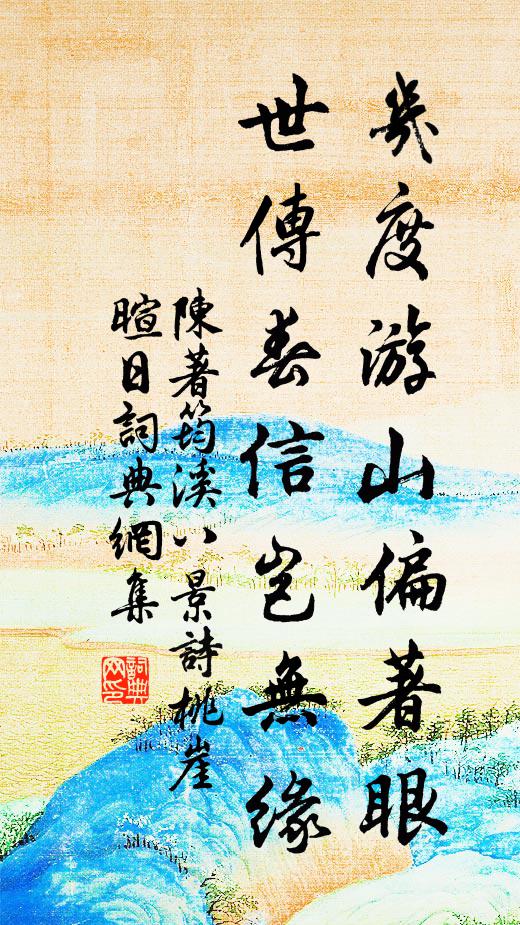 幾度游山偏著眼
世傳春信豈無緣
陳著筠溪八景詩桃崖
暄日詞典網集
詞典网印